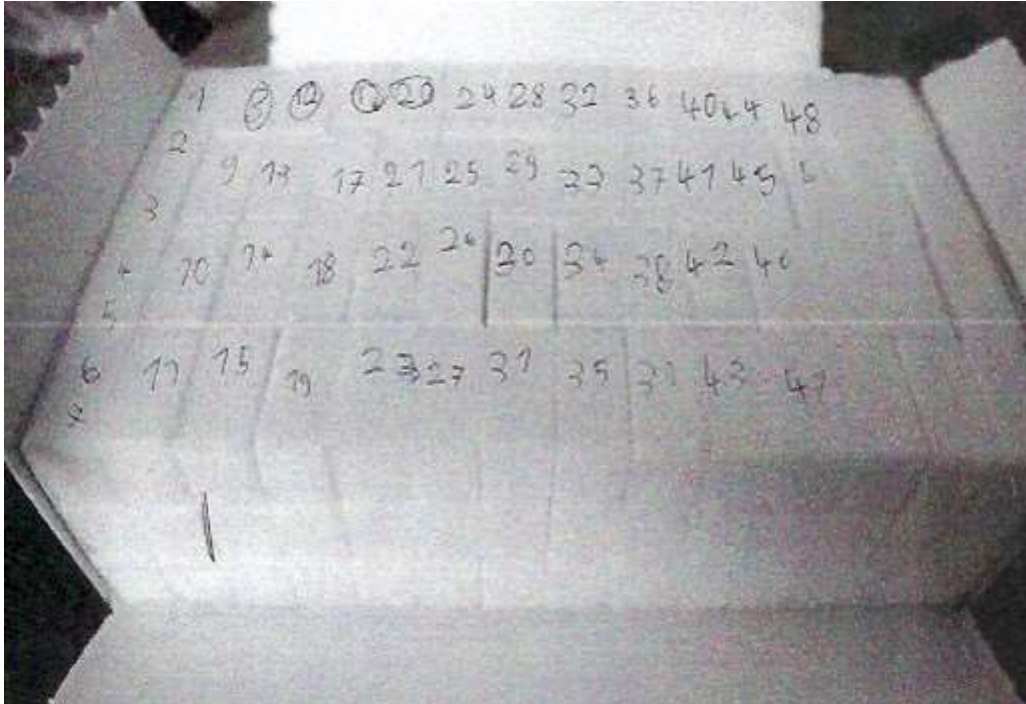 1 8 12 16 20 24 28 32 36 40 44 48
2
9 13 17 21 25 29 33 37 41 45
3
4 10 14 18 22 26 30 34 38 42 46
5
6 11 15 19 23 27 31 35 39 43 47
7